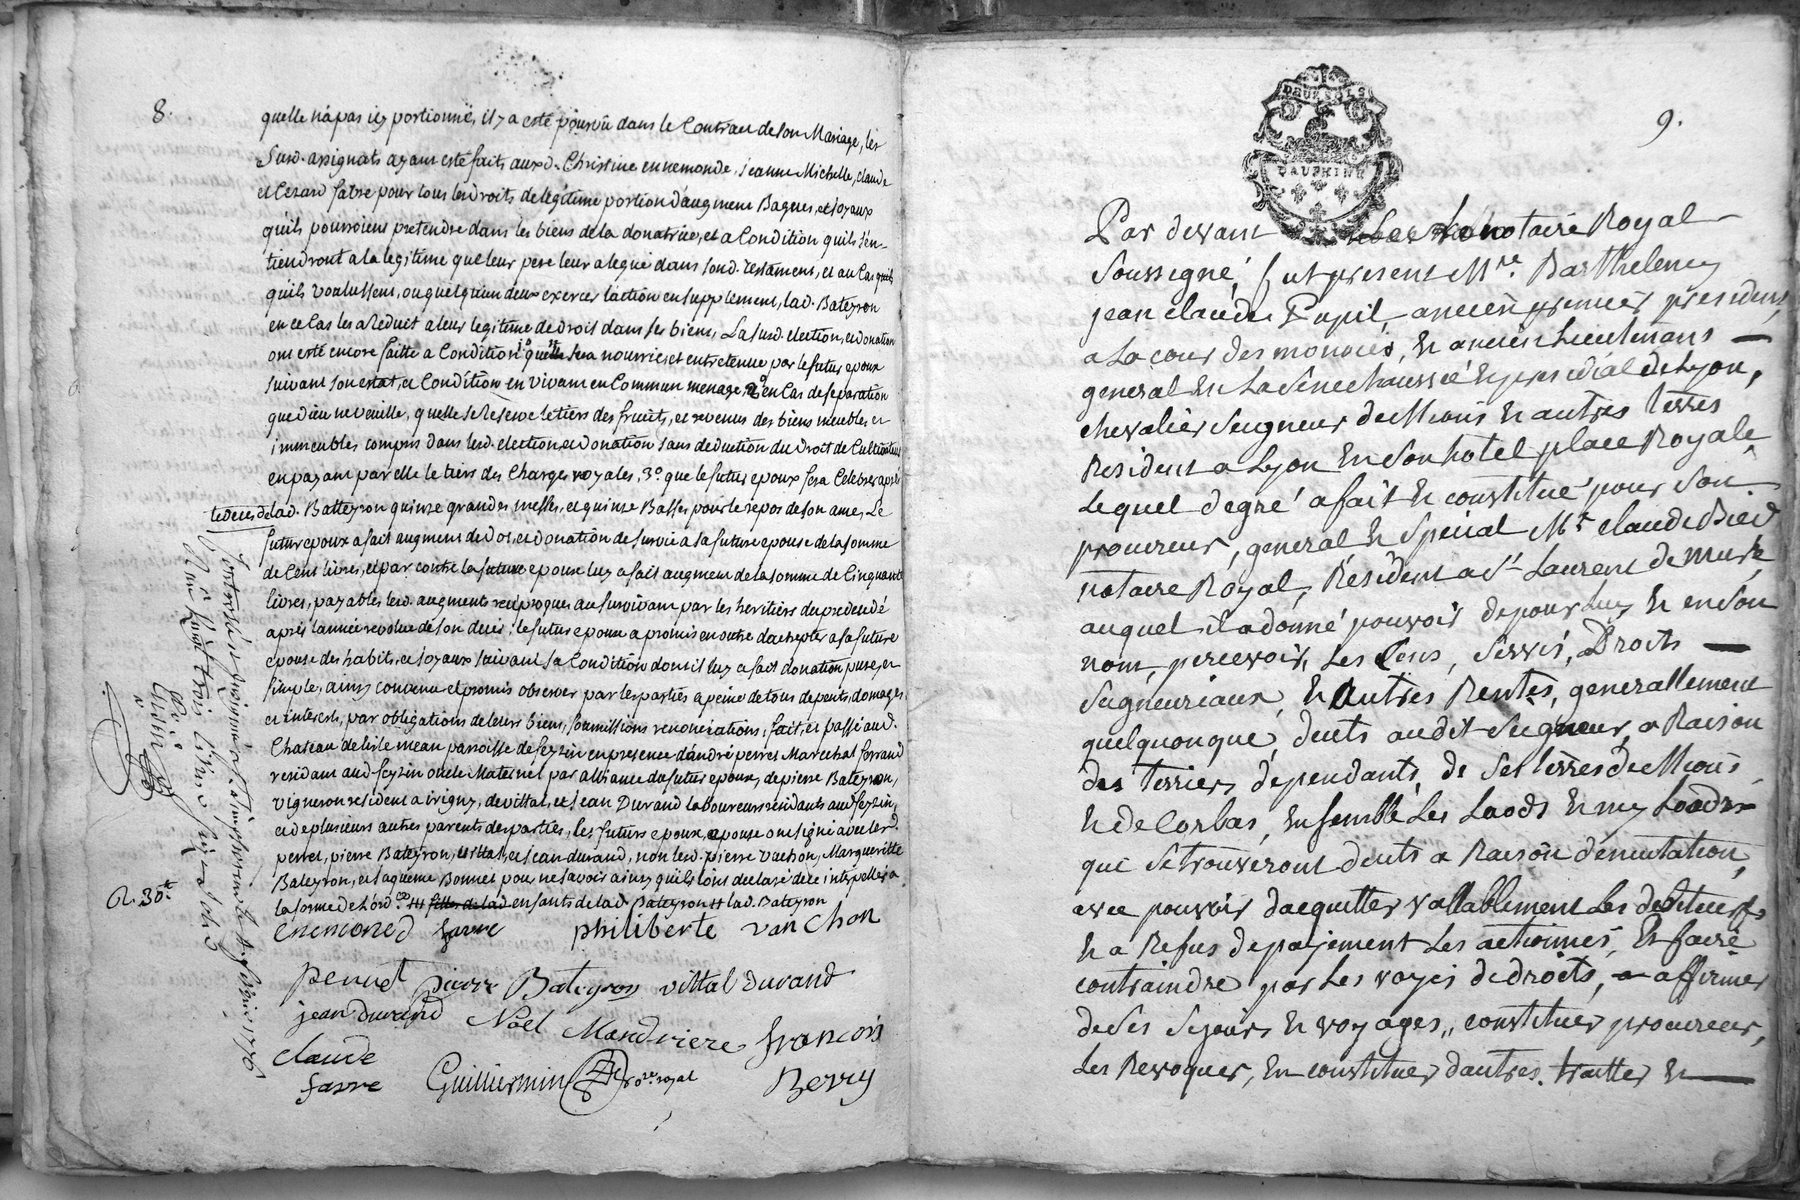 8.
quelle na pas icy portionné, il y a esté pourvû dans le Contrau de son Mariage, les
Susd. assignats ayant esté faits auxd. Christine ennemonde, jeanne Michelle, claude
et Cezard fabre pour tous les droits de legitime portion d'augment Bagues, et joyaux
qu'ils pourroient pretendre dans les biens de la donatrice, et a Condition quils s'en
tiendront a la legitime que leur pere leur a legué dans sond. testament, et au Cas quils
quils voulussent, ou quelquun deux exercer l'action en supplement, lad. Bateyron
en ce Cas les a Reduit a leur legitime de droit dans ses biens, La susd. election, et donation
ont esté encore faitte a Condition 1º quelle sera nourrie, et entretenue par le futur epoux
suivant son estat, et Condition en vivant en Commun menage 2º en Cas de separation
que dieu ne veuille, quelle se Reserve le tiers des fruits, et revenus des biens meubles, et
immeubles compris dans lesd. election, et donation sans deduction du droit de Cultivateur
en payant par elle le tiers des Charges royales, 3º que le futur epoux fera Celebrer après
le deces de lad. Batteyron quinse grandes messes, et quinse Basses pour le repos de son ame, Le
futur epoux a fait augment de dot, et donation de survie a sa future epouse de la somme
de Cent livres, et par contre la future epouse luy a fait augment de la somme de Cinquante
livres, payables lesd. augments reciproques au survivant par les heritiers du predecedé
après l'année revolue de son deces; le futur epoux a promis en outre dachepter a sa future
epouse des habits, et joyaux suivant sa Condition dont il luy a fait donation pure, et
simple, ainsy convenu et promis observer par les parties a peine de tous depents, domages,
et interests, par obligations de leurs biens, soumissions renonciations, fait, et passé aud.
Chateau de lisle mean parroisse de feyzin en presence d'andré perret Marechal ferrand
residant aud feyzin oncle Maternel par alliance du futur epoux, de pierre Bateyron,
vigneron resident a irigny, de vittal, et jean Durand laboureurs residants aud feyzin,
et de plusieurs autres parents des parties, les futurs epoux, epouse ont signé avec led.
perret, pierre Bateyron, vittal, et jean durand, non led. pierre vachon, Margueritte
Bateyron, et jaquême Bonnet pour ne savoir ainsy quils l'ont declaré de ce interpellés a
la forme de l'ord.ce enfants de lad. Bateyron lad. Bateyron
a. 30.#
ennemond favre philiberte vanChon
Perret pierre Bateyron vittal Durand
jean Durand Noël Mandriere françois
claude Berry
favre Guilliermin no.re royal
9.
DEUX SOLS
DAUPHINE
Par devant Le notaire Royal
Soussigné, fut present M.re Barthelemy
jean claude Pupil, ancien premier president
a La cour des monoies, et ancien Lieutenant
general en La Senechaussée et presidial de Lyon,
chevalier Seigneur de Mions et autres terres
Resident a Lyon en Son hotel place Royale,
Lequel de gré a fait et constitué pour Son
procureur, general et Special M.r claude Bied
notaire Royal, Résident a St Laurent de mure
auquel il a donné pouvoir de pour Luy et en Son
nom, percevoir, Les Cens, Servis, Droits
Seigneuriaux, et Autres Rentes, generallement
quelquonque, deuts audit Seigneur, a Raison
des terriers dependants, de Ses terres de Mions
et de Corbas, ensemble Les Laods et my Laods
que Se trouveront deuts a Raison de mutation,
avec pouvoir dacquitter vallablement Les debiteurs
et a Refus de payement Les actionner, et faire
contraindre par Les voyes de droits, affirmer
de Ses Sejours et voyages, constituer procureur,
Les Revoquer, en constituer dautres, traitter et